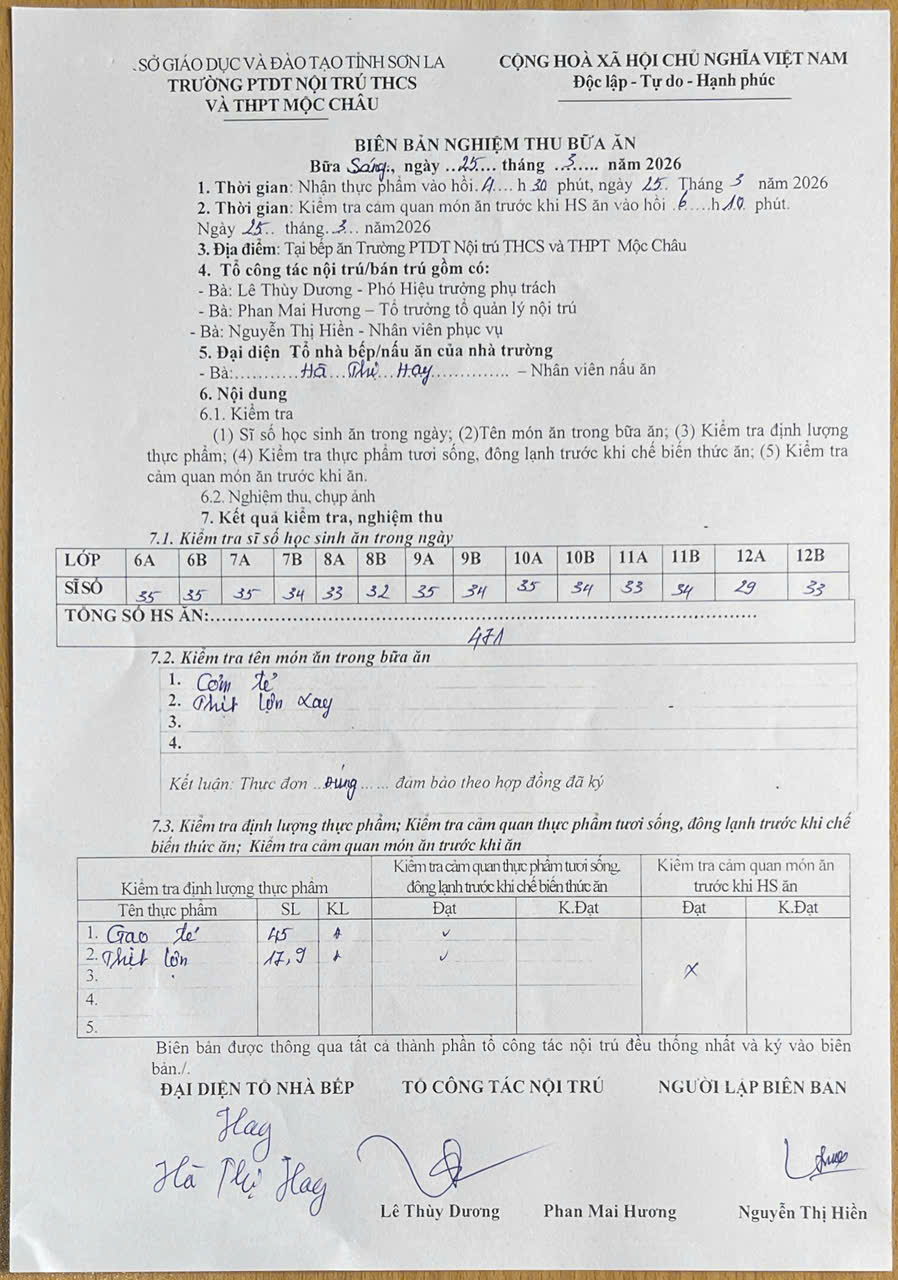 SỞ GIÁO DỤC VÀ ĐÀO TẠO TỈNH SƠN LA
TRƯỜNG PTDT NỘI TRÚ THCS
VÀ THPT MỘC CHÂU
CỘNG HOÀ XÃ HỘI CHỦ NGHĨA VIỆT NAM
Độc lập - Tự do - Hạnh phúc
BIÊN BẢN NGHIỆM THU BỮA ĂN
Bữa Sáng., ngày ..25.... tháng ..3...... năm 2026
1. Thời gian: Nhận thực phẩm vào hồi.4.... h 30 phút, ngày 25. Tháng 3 năm 2026
2. Thời gian: Kiểm tra cảm quan món ăn trước khi HS ăn vào hồi .6....h10. phút.
Ngày 25.. tháng..3... năm2026
3. Địa điểm: Tại bếp ăn Trường PTDT Nội trú THCS và THPT Mộc Châu
4. Tổ công tác nội trú/bán trú gồm có:
- Bà: Lê Thùy Dương - Phó Hiệu trưởng phụ trách
- Bà: Phan Mai Hương – Tổ trưởng tổ quản lý nội trú
- Bà: Nguyễn Thị Hiền - Nhân viên phục vụ
5. Đại diện Tổ nhà bếp/nấu ăn của nhà trường
- Bà:...........Hà...Thị...Hay.............. – Nhân viên nấu ăn
6. Nội dung
6.1. Kiểm tra
(1) Sĩ số học sinh ăn trong ngày; (2)Tên món ăn trong bữa ăn; (3) Kiểm tra định lượng
thực phẩm; (4) Kiểm tra thực phẩm tươi sống, đông lạnh trước khi chế biến thức ăn; (5) Kiểm tra
cảm quan món ăn trước khi ăn.
6.2. Nghiệm thu, chụp ảnh
7. Kết quả kiểm tra, nghiệm thu
7.1. Kiểm tra sĩ số học sinh ăn trong ngày
LỚP 6A 6B 7A 7B 8A 8B 9A 9B 10A 10B 11A 11B 12A 12B
SĨ SỐ 35 35 35 34 33 32 35 34 35 34 33 34 29 33
TỔNG SỐ HS ĂN:....................................................................
471
7.2. Kiểm tra tên món ăn trong bữa ăn
1. Cơm tẻ
2. Thịt lợn xay
3.
4.
Kết luận: Thực đơn ...đúng...... đảm bảo theo hợp đồng đã ký
7.3. Kiểm tra định lượng thực phẩm; Kiểm tra cảm quan thực phẩm tươi sống, đông lạnh trước khi chế
biến thức ăn; Kiểm tra cảm quan món ăn trước khi ăn
Kiểm tra định lượng thực phẩm
Kiểm tra cảm quan thực phẩm tươi sống,
đông lạnh trước khi chế biến thức ăn
Kiểm tra cảm quan món ăn
trước khi HS ăn
Tên thực phẩm SL KL Đạt K.Đạt Đạt K.Đạt
1. Gạo tẻ 45 ✓
2. Thịt lợn 17,9 ✓
3. x
4.
5.
Biên bản được thông qua tất cả thành phần tổ công tác nội trú đều thống nhất và ký vào biên
bản./.
ĐẠI DIỆN TỔ NHÀ BẾP TỔ CÔNG TÁC NỘI TRÚ NGƯỜI LẬP BIÊN BẢN
Hay
Hà Thị Hay
Lê Thùy Dương Phan Mai Hương Nguyễn Thị Hiền